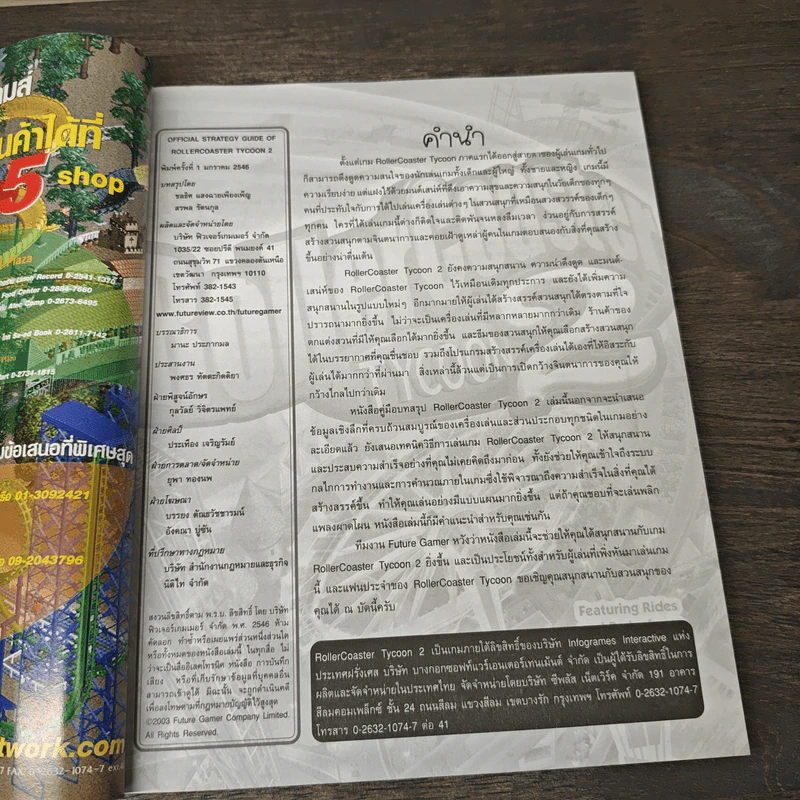 มส์
นค้าได้ที่
5 shop
Plaza
Record 0-2941-1376
Food Center 0-2884-7660
Comp 0-2673-6495
Se-ed Book 0-2611-7142
0-2734-1815
ข้อเสนอที่พิเศษสุด
01-3092421
09-2043796
twork.com
OFFICIAL STRATEGY GUIDE OF
ROLLERCOASTER TYCOON 2
พิมพ์ครั้งที่ 1 มกราคม 2546
บทสรุปโดย
ชลธิต แสงฉายเพียงเพ็ญ
สรพล รัตนกุล
ผลิตและจัดจำหน่ายโดย
บริษัท ฟิวเจอร์เกมเมอร์ จำกัด
1035/22 ซอยปรีดี พนมยงค์ 41
ถนนสุขุมวิท 71 แขวงคลองตันเหนือ
เขตวัฒนา กรุงเทพฯ 10110
โทรศัพท์ 382-1543
โทรสาร 382-1545
www.futureview.co.th/futuregamer
บรรณาธิการ
มานะ ประภากมล
ประสานงาน
พงศธร ทัตตะกิตติยา
ฝ่ายพิสูจน์อักษร
กุลวัลย์ วิจิตรแพทย์
ฝ่ายศิลป์
ประเทือง เจริญรัมย์
ฝ่ายการตลาด/จัดจำหน่าย
ยุพา ทองนพ
ฝ่ายโฆษณา
บรรยง ตัณธวัชชารมน์
อังคณา ปู่ซัน
ที่ปรึกษาทางกฎหมาย
บริษัท สำนักงานกฎหมายและธุรกิจ
นิติไท จำกัด
สงวนลิขสิทธิ์ตาม พ.ร.บ. ลิขสิทธิ์ โดย บริษัท
ฟิวเจอร์เกมเมอร์ จำกัด พ.ศ. 2546 ห้าม
คัดลอก ทำซ้ำหรือเผยแพร่ส่วนหนึ่งส่วนใด
หรือทั้งหมดของหนังสือเล่มนี้ ในทุกสื่อ ไม่
ว่าจะเป็นสื่ออิเลคโทรนิค หนังสือ การบันทึก
เสียง หรือที่เก็บรักษาข้อมูลที่บุคคลอื่น
สามารถเข้าดูได้ มิฉะนั้น จะถูกดำเนินคดี
เพื่อลงโทษตามที่กฎหมายบัญญัติไว้สูงสุด
©2003 Future Gamer Company Limited.
All Rights Reserved.
คำนำ
ตั้งแต่เกม RollerCoaster Tycoon ภาคแรกได้ออกสู่สายตาของผู้เล่นเกมทั่วไป
ก็สามารถดึงดูดความสนใจของนักเล่นเกมทั้งเด็กและผู้ใหญ่ ทั้งชายและหญิง เกมนี้มี
ความเรียบง่าย แต่แฝงไว้ด้วยมนต์เสน่ห์ที่ดึงเอาความสุขและความสนุกในวัยเด็กของทุกๆ
คนที่ประทับใจกับการได้ไปเล่นเครื่องเล่นต่างๆ ในสวนสนุกที่เหมือนสรวงสวรรค์ของเด็กๆ
ทุกคน ใครที่ได้เล่นเกมนี้ต่างก็ติดใจและติดพันจนหลงลืมเวลา ง่วนอยู่กับการสรรค์
สร้างสวนสนุกตามจินตนาการและคอยเฝ้าดูเหล่าผู้คนในเกมตอบสนองกับสิ่งที่คุณสร้าง
ขึ้นอย่างน่าตื่นเต้น
RollerCoaster Tycoon 2 ยังคงความสนุกสนาน ความน่าดึงดูด และมนต์-
เสน่ห์ของ RollerCoaster Tycoon ไว้เหมือนเดิมทุกประการ และยังได้เพิ่มความ
สนุกสนานในรูปแบบใหม่ๆ อีกมากมายให้ผู้เล่นได้สร้างสรรค์สวนสนุกได้ตรงตามที่ใจ
ปรารถนามากยิ่งขึ้น ไม่ว่าจะเป็นเครื่องเล่นที่มีหลากหลายมากกว่าเดิม ร้านค้าของ
ตกแต่งสวนที่มีให้คุณเลือกมากยิ่งขึ้น และธีมของสวนสนุกให้คุณเลือกสร้างสวนสนุก
ได้ในบรรยากาศที่คุณชื่นชอบ รวมถึงโปรแกรมสร้างสรรค์เครื่องเล่นได้เองที่ให้อิสระกับ
ผู้เล่นได้มากกว่าที่ผ่านมา สิ่งเหล่านี้ล้วนแต่เป็นการเปิดกว้างจินตนาการของคุณให้
กว้างไกลไปกว่าเดิม
หนังสือคู่มือบทสรุป RollerCoaster Tycoon 2 เล่มนี้นอกจากจะนำเสนอ
ข้อมูลเชิงลึกที่ครบถ้วนสมบูรณ์ของเครื่องเล่นและส่วนประกอบทุกชนิดในเกมอย่าง
ละเอียดแล้ว ยังเสนอเทคนิควิธีการเล่นเกม RollerCoaster Tycoon 2 ให้สนุกสนาน
และประสบความสำเร็จอย่างที่คุณไม่เคยคิดถึงมาก่อน ทั้งยังช่วยให้คุณเข้าใจถึงระบบ
กลไกการทำงานและการคำนวณภายในเกมซึ่งใช้พิจารณาถึงความสำเร็จในสิ่งที่คุณได้
สรรค์สร้างขึ้น ทำให้คุณเล่นอย่างมีแบบแผนมากยิ่งขึ้น แต่ถ้าคุณชอบที่จะเล่นพลิก
แพลงผาดโผน หนังสือเล่มนี้ก็มีคำแนะนำสำหรับคุณเช่นกัน
ทีมงาน Future Gamer หวังว่าหนังสือเล่มนี้จะช่วยให้คุณได้สนุกสนานกับเกม
RollerCoaster Tycoon 2 ยิ่งขึ้น และเป็นประโยชน์ทั้งสำหรับผู้เล่นที่เพิ่งหันมาเล่นเกม
นี้ และแฟนประจำของ RollerCoaster Tycoon ขอเชิญคุณสนุกสนานกับสวนสนุกของ
คุณได้ ณ บัดนี้ครับ
Featuring Rides
RollerCoaster Tycoon 2 เป็นเกมภายใต้ลิขสิทธิ์ของบริษัท Infogrames Interactive แห่ง
ประเทศฝรั่งเศส บริษัท บางกอกซอฟท์แวร์เอนเตอร์เทนเม้นต์ จำกัด เป็นผู้ได้รับลิขสิทธิ์ในการ
ผลิตและจัดจำหน่ายในประเทศไทย จัดจำหน่ายโดยบริษัท ซีพลัส เน็ตเวิร์ค จำกัด 191 อาคาร
สีลมคอมเพล็กซ์ ชั้น 24 ถนนสีลม แขวงสีลม เขตบางรัก กรุงเทพฯ โทรศัพท์ 0-2632-1074-7
โทรสาร 0-2632-1074-7 ต่อ 41